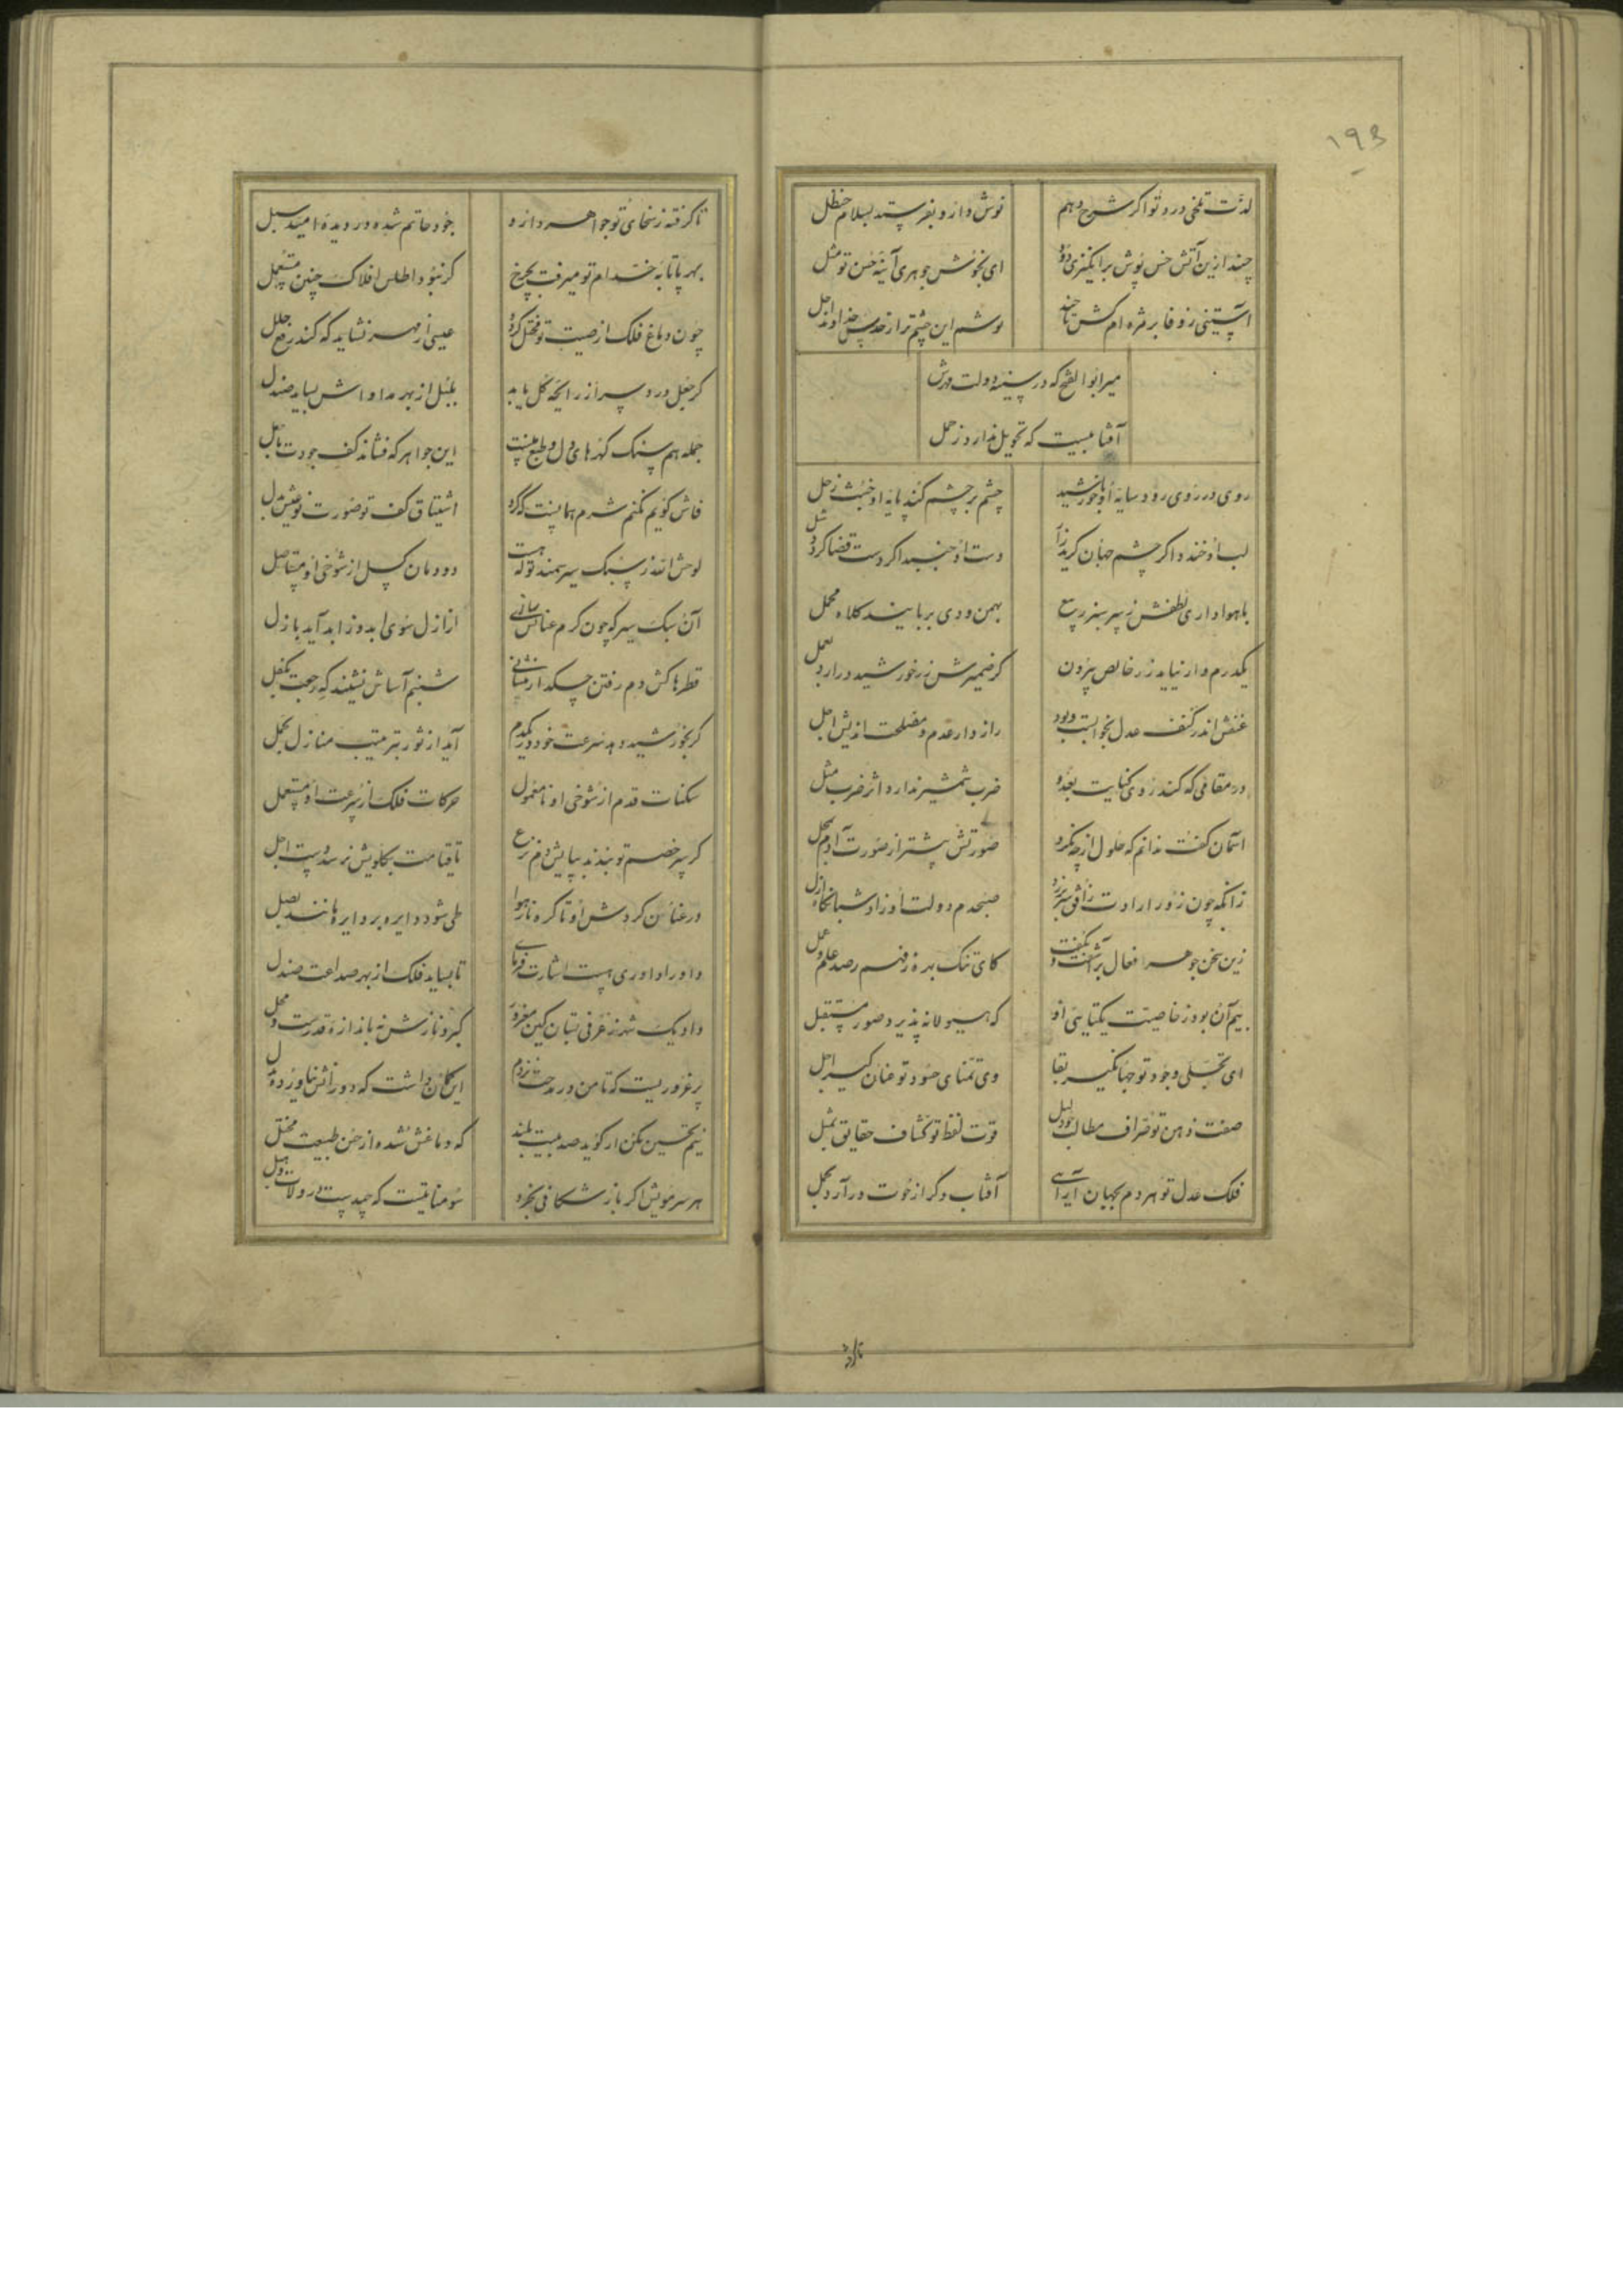 ۱۹۳
لذت تلخی درد تو اگر شرح دهم
نوش دارو بفرستد بسلام حنظل
چند ازین آتش خس پوش برانگیزی دود
ای نجوشش جوهری آینه حسن تو مثل
آستینی ز وفا بر مژه ام کش تا چند
میر ابوالفتح که در سینه دولت مهرش
آفتابیست که تحویل ندارد ز حمل
روی در روی رود سایه او با خورشید
چشم بر چشم کند پایه او جفت زحل
لب او خندد اگر چشم جهان گرید زار
دست او جنبد اگر دست قضا گردد شل
با هواداری لطفش ز سپر سبز ربیع
بهمن و دی بربایند کلاه مخمل
یکدرم وار نیاید زر خالص بیرون
گر ضمیرش نه ز خورشید درآرد بعمل
عنفش اندر کنف عدل نخوابست و بود
رازدار عدم و مصلحت اندیش اجل
در مقامی که کند روی کنایت بعدو
ضرب شمشیر ندارد اثر ضرب مثل
آسمان گفت ندانم که حلول از چه نکرد
صورتش پیشتر از صورت آدم بمحل
زانکه چون زور ارادت ز افق سر بر زد
صبحدم دولت او زاد شبانگاه ازل
زین سخن جوهر فعال برآشفت و بگفت
کای تنک بهره ز فهم رصد علم و عمل
بیم آن بود ز خاصیت یکتایی او
که هیولا نه پذیرد صور مستقبل
ای تجلی وجود تو جهانگیر بقا
وی تمنای حسود تو عنان گیر اجل
صفت ذهن تو صراف مطالب بدلیل
قوت لفظ تو کشاف حقایق بمثل
فلک عدل تو هر دم بجهان آرایی
آفتاب دگر از حوت درآرد بحمل
تا گرفته ز سخای تو جواهر دارو
جود حاتم شده در دیده امید سبل
بهر پاتابه خدام تو میرفت بچرخ
گر نبود اطلس افلاک چنین مستعمل
چون دماغ فلک از صیت تو مختل گردد
عیسی از مهر نشاید که کند رفع خلل
گر جعل درد سر از رایحه گل یابد
بلبل از بهر مداواش بساید صندل
جمله هم سنگ گهرهای دل و طبع منست
این جواهر که فشاند کف جودت بامل
فاش گویم نکنم شرم همانست که کرد
اشتیاق کف تو صورت نوعیش بدل
لوحش الله ز سبک سیر سمند تو که هست
دودمان کسل از شوخی او مستاصل
آن سبک سیر که چون گرم عنانش سازی
از ازل سوی ابد وز ابد آید بازل
قطره کش دم رفتن چکد از پیشانی
شبنم آساش نشیند گه رجعت بکفل
گر بخورشید دهد سرعت خود در یکدم
آید از ثور بترتیب منازل بحمل
سکنات قدم از شوخی او نامعمول
حرکات فلک از سرعت او مستعمل
گر سر خصم تو بندند بپایش دم نزع
تا قیامت بگلویش نرسد دست اجل
در عنان گردش او تا گره نار هوا
طی شود دایره بر دایره مانند بصل
داورا داوری هست اشارت فرمای
تا بساید فلک از بهر صداعت صندل
داد یک شهر ز عرفی بستان کین مغرور
کبر و نازش نه باندازه قدرست و محل
پر غروریست که تا من در مدحت نزدم
این گمان داشت که دور اثر نیاورده بدل
نیم تحسین نکن ار گوید صد بیت بلند
که دماغش شده از حسن طبیعت مختل
هر سر مویش اگر باز شکافی بخرد
سومناتیست که چیدست در و لات و هبل